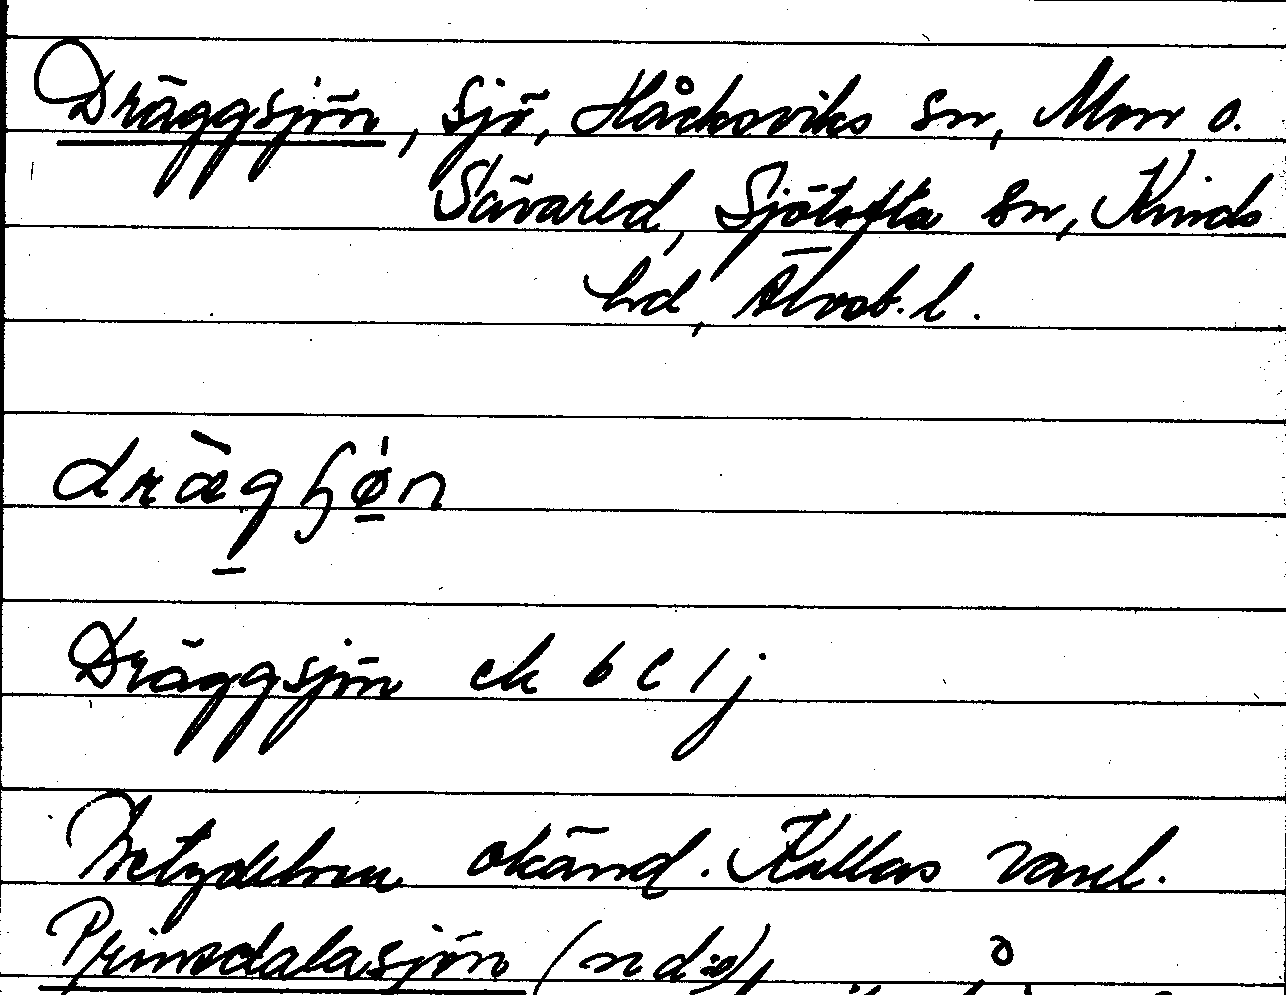 Dräggsjön, sjö, Håcksviks sn, Mon o.
Sävared, Sjötofta sn, Kinds
hd, Älvsb. l.
dræ̀gʃø̀n
Dräggsjön ek b C 1 j
Betydelsen okänd. Kallas vanl.
Prinsdalasjön (n d:o),